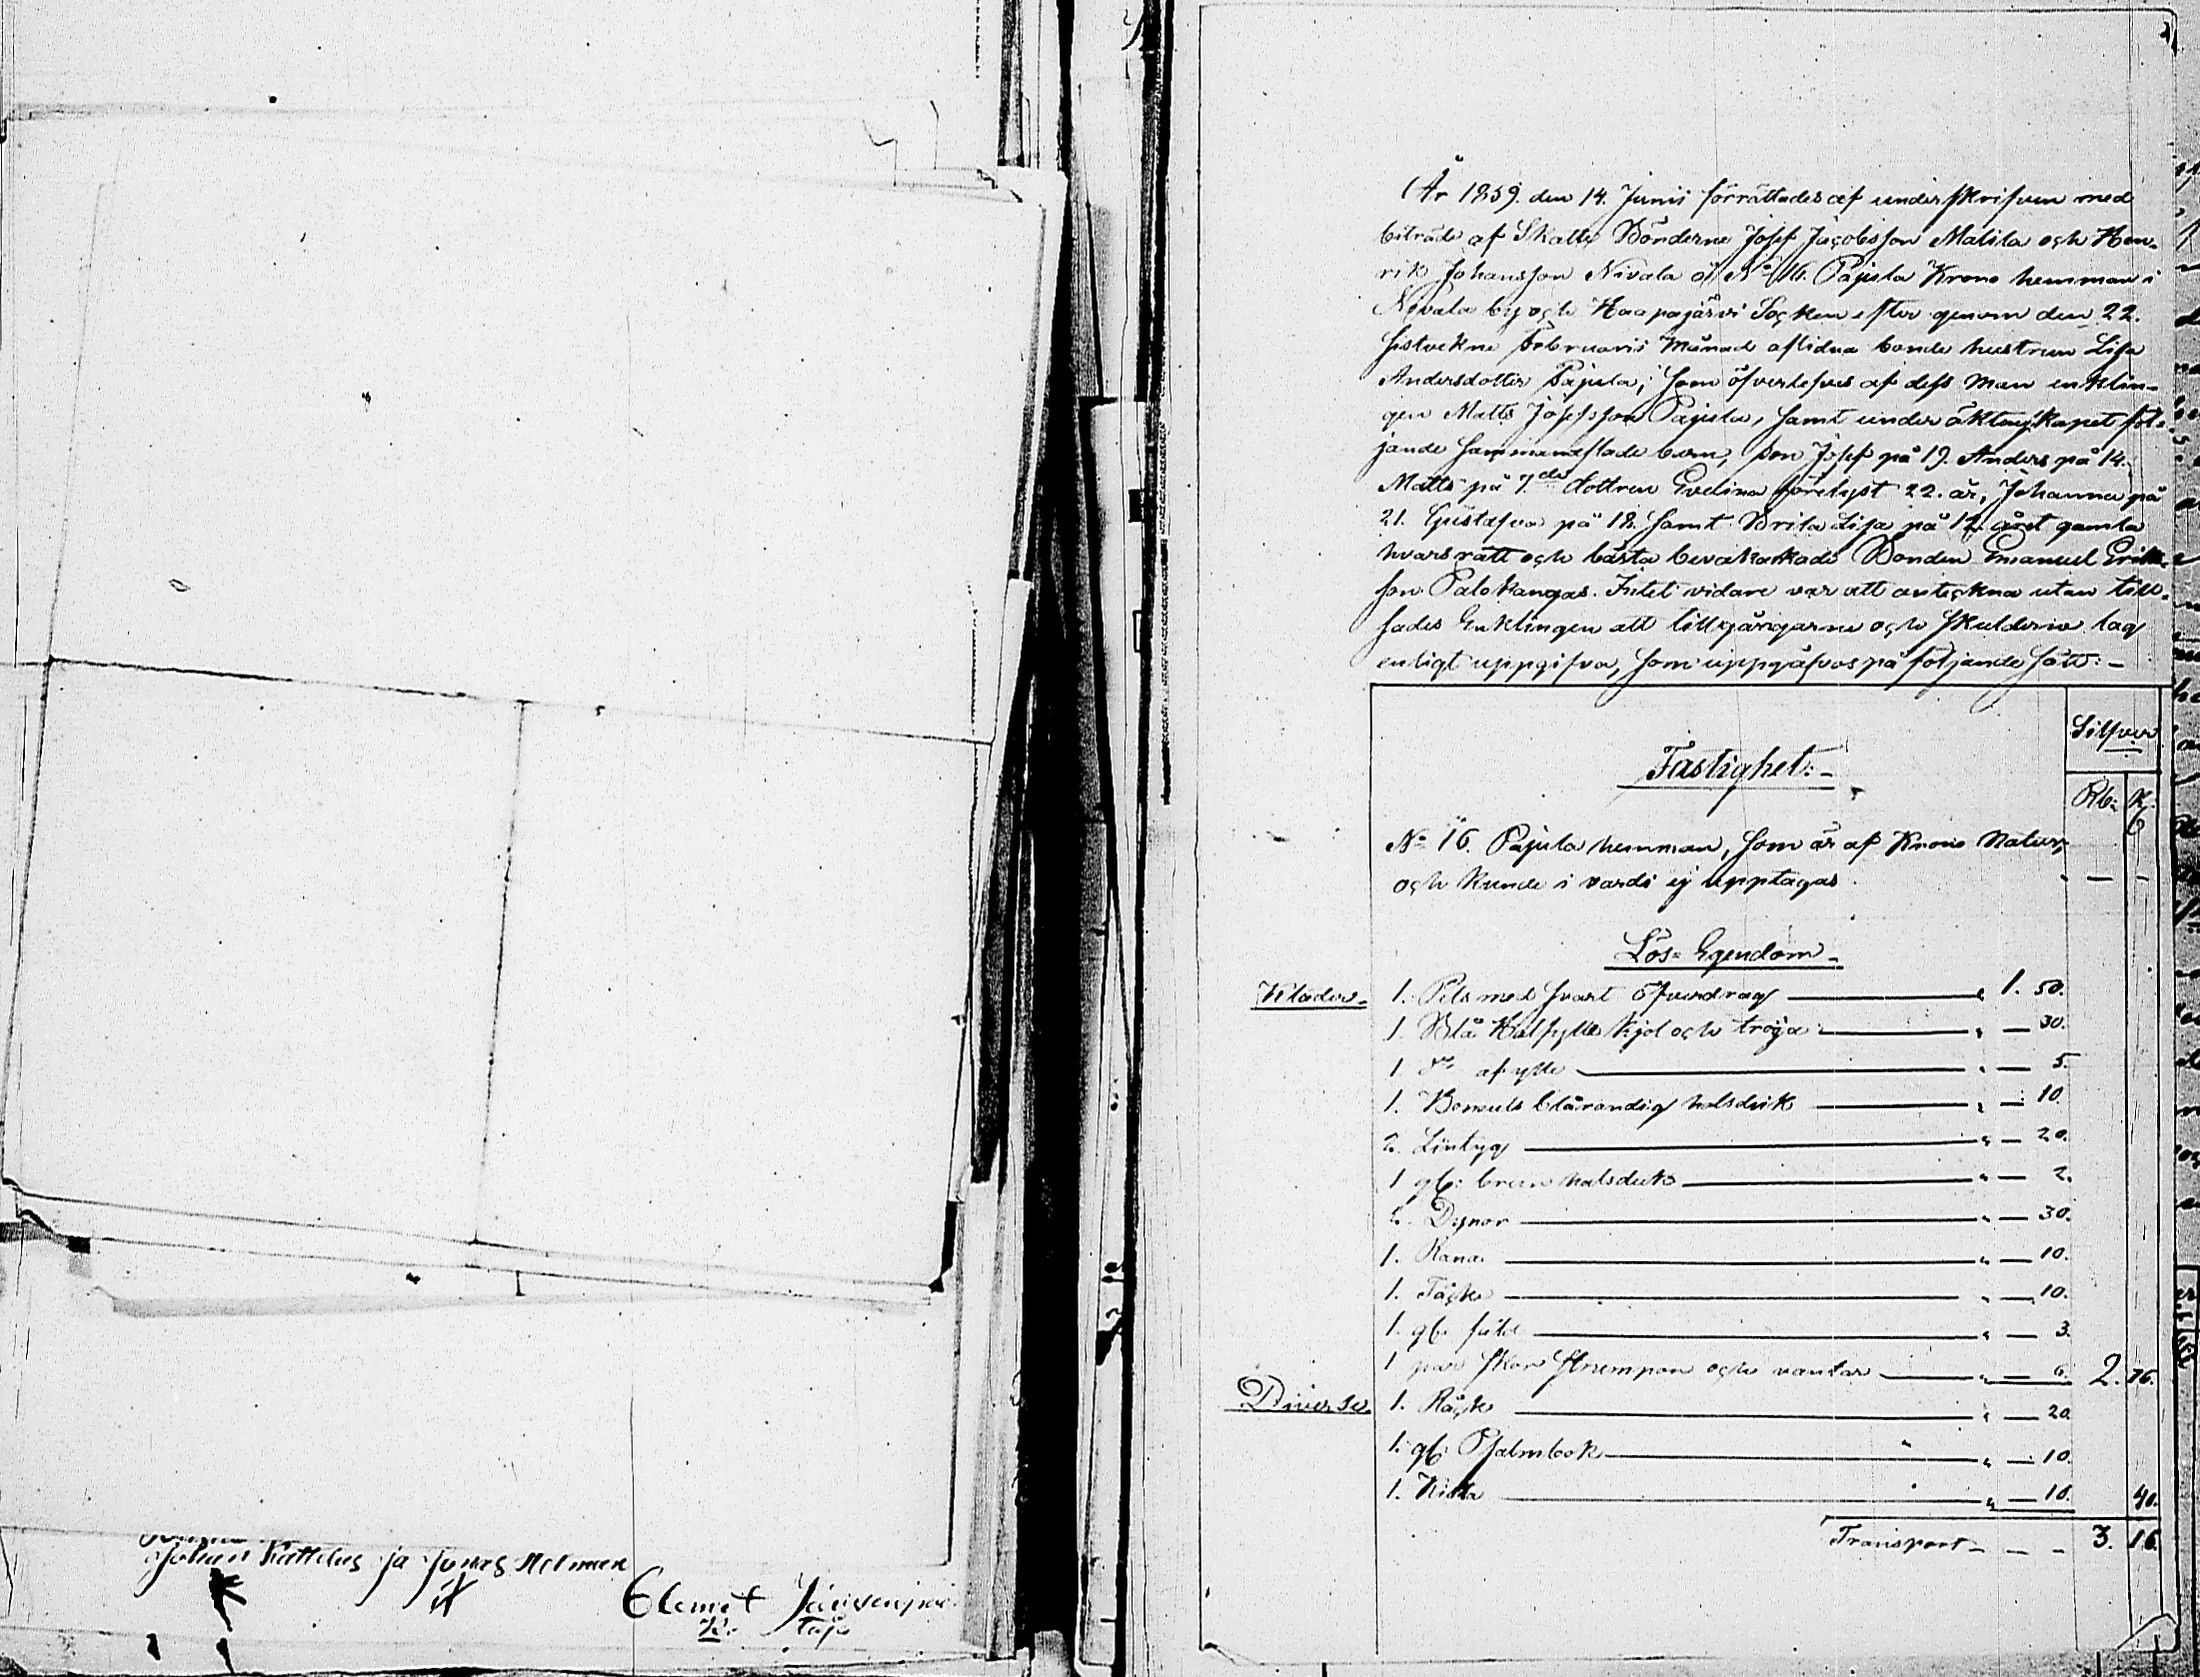 Johan Kattelus ja Jonas
Clemet Järvenpää
År 1859. den 14. Junii förrättades af underskrifven med
biträde af Skatte Bönderne Josef Jacobsson Matila och Hen-
rik Johansson Nivala å No 16. Pajula Krono hemman i
Nivala by och Haapajärvi Socken efter genom den 22.
sistvekne Februarii Månad aflidna bonde hustrun Lisa
Andersdotter Pajula, som öfverlefves af dess man enklin-
gen Matts Josefsson Pajula, samt under äktenskapet föl-
jande sammanaflade barn, Son Josef på 19. Anders på 14.
Matts på 7de dottren Evelina förelyst 22. år, Johanna på
21. Gustafva på 18. samt Brita Lisa på 12. året gamla
hvars rätt och bästa bevakade Bonden Emanuel Erik-
son Palokangas. Intet vidare var att anteckna utan till-
sades Enklingen att tillgångarne och skulderne lag
enligt uppgifva, som uppgåfvos på följande sätt:-
Silfver
Fastighet:-
Rb: K:
No 16. Pajula hemman, som är af Krono Natur,
och kunde i värde ej upptagas. - - -
Lös-Egendom-
Kläder- 1. Pels med svart öfverdrag " 1. 50.
1 Blå Halfylle kjol och tröja " - 30.
1 Do af ylle " - 5.
1. Bomuls blårandig halsduk " - 10.
2. Lintyg " - 20.
1 gl: brun halsduk " - 2.
2. Dynor " - 30.
1. Rana " - 10.
1. Täcke " - 10.
1. gl. fäld " - 3.
1 par skor strumpor och vantar " - 6. 2. 76.
Diverse. 1. Räck " - 20
1. gl: Psalmbok " - 10.
1. Kista " - 10. 40.
Transport - - - 3. 16.